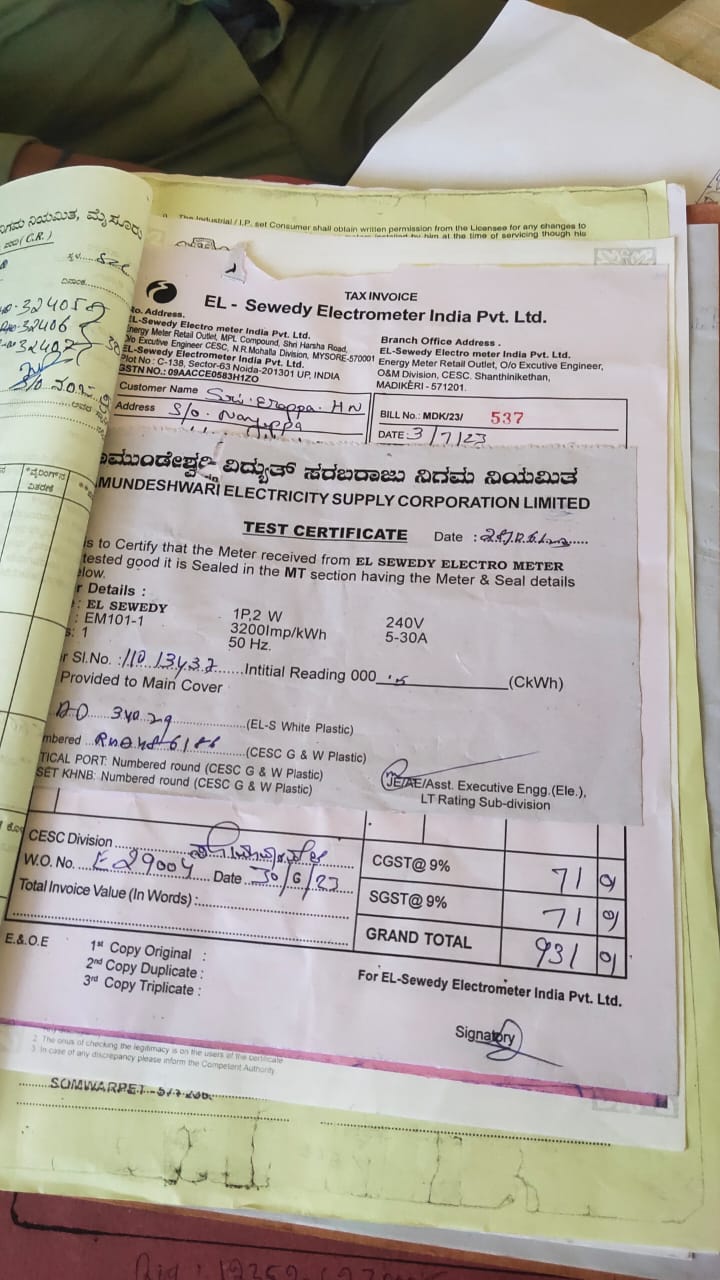 ನಿಗಮ ನಿಯಮಿತ, ಮೈಸೂರು
(C.R.)
32405
32406
32407
*ವೈರಿಂಗ್‌ನ
ವಿತರಣೆ
The Industrial / I.P. set Consumer shall obtain written permission from the Licensee for any changes to
by him at the time of servicing though his
TAX INVOICE
EL - Sewedy Electrometer India Pvt. Ltd.
o. Address.
EL-Sewedy Electro meter India Pvt. Ltd.
Energy Meter Retail Outlet, MPL Compound, Shri Harsha Road,
O/o Excutive Engineer CESC, N.R.Mohalla Division, MYSORE-570001
EL-Sewedy Electrometer India Pvt. Ltd.
Plot No : C-138, Sector-63 Noida-201301 UP, INDIA
GSTN NO.:09AACCE0583H1ZO
Branch Office Address .
EL-Sewedy Electro metor India Pvt. Ltd.
Energy Meter Retail Outlet, O/o Excutive Engineer,
O&M Division, CESC. Shanthinikethan,
MADIKERI - 571201.
Customer Name Sri. Eroppa. H N
Address S/o. Nanjuppa
BILL No.: MDK/23/ 537
DATE: 3/7/23
ಮುಂಡೇಶ್ವರಿ ವಿದ್ಯುತ್ ಸರಬರಾಜು ನಿಗಮ ನಿಯಮಿತ
MUNDESHWARI ELECTRICITY SUPPLY CORPORATION LIMITED
TEST CERTIFICATE Date :
is to Certify that the Meter received from EL SEWEDY ELECTRO METER
tested good it is Sealed in the MT section having the Meter & Seal details
elow.
r Details :
: EL SEWEDY 1P,2 W 240V
: EM101-1 3200Imp/kWh 5-30A
s: 1 50 Hz.
r Sl.No. :11013437 Intitial Reading 000 (CkWh)
Provided to Main Cover
34029 (EL-S White Plastic)
mbered (CESC G & W Plastic)
TICAL PORT: Numbered round (CESC G & W Plastic)
SET KHNB: Numbered round (CESC G & W Plastic)
JE/AE/Asst. Executive Engg.(Ele.),
LT Rating Sub-division
CESC Division
W.O. No. E29004 Date 30/6/23
Total Invoice Value (In Words) :
CGST@ 9% 71
SGST@ 9% 71
GRAND TOTAL 931
E.& O.E
1st Copy Original :
2nd Copy Duplicate :
3rd Copy Triplicate :
For EL-Sewedy Electrometer India Pvt. Ltd.
Signatory
2. The onus of checking the legitimacy is on the users of the certificate
3. In case of any discrepancy please inform the Competent Authority
SOMWARPET - 571236.